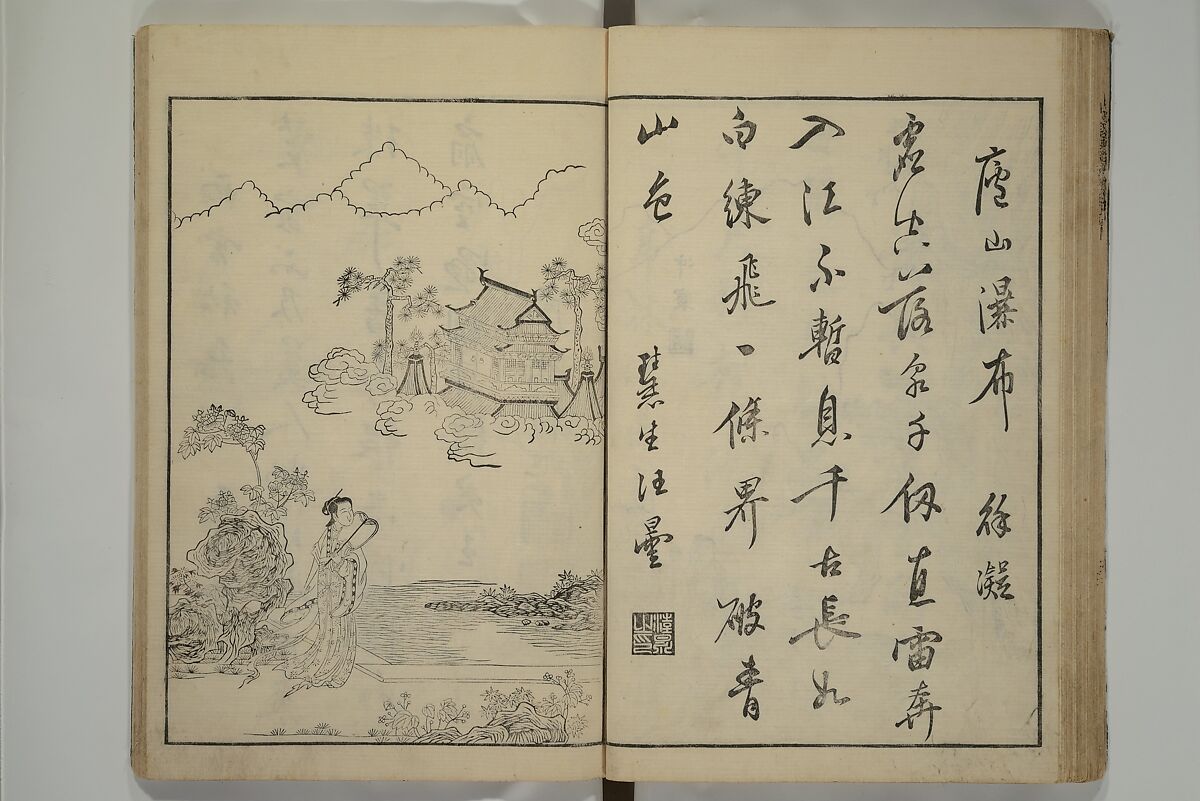 廬山瀑布 徐凝
虛空落泉千仞直雷奔
入江不暫息千古長如
白練飛一條界破青
山色 慧生汪曇